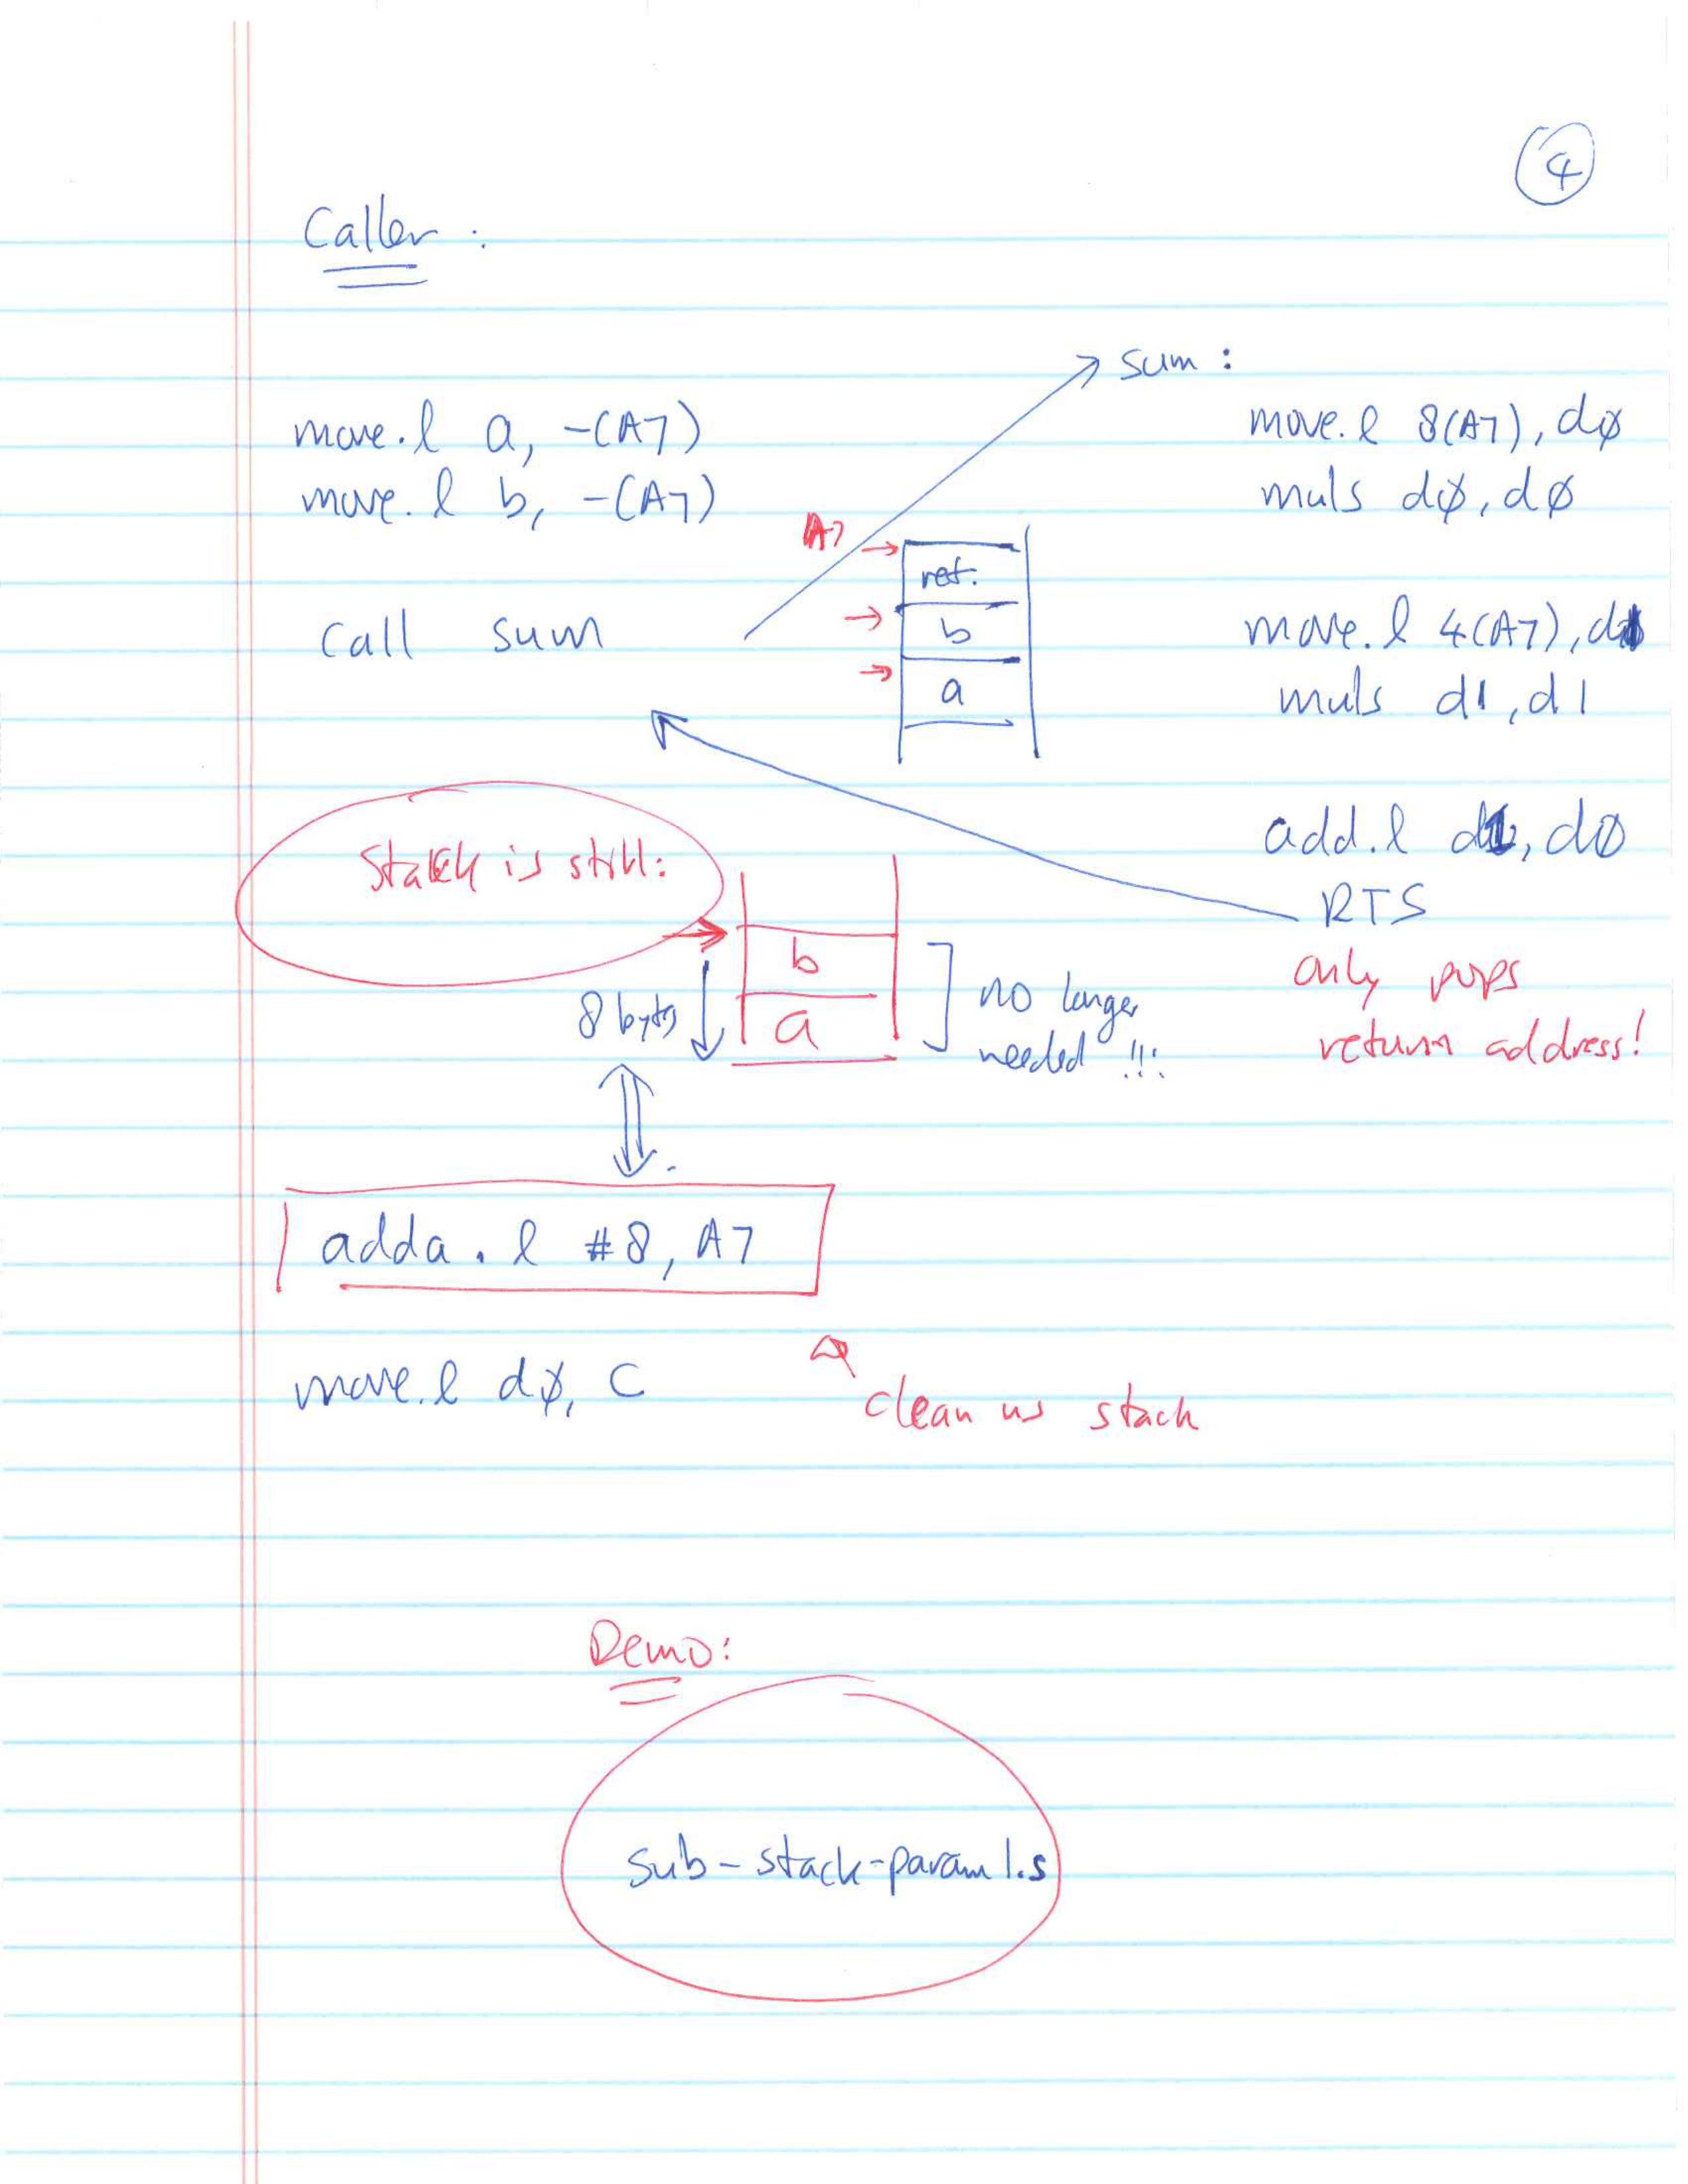 4
Caller :
move.l a, -(A7)
move.l b, -(A7)
call sum
sum :
move.l 8(A7), dø
muls dø, dø
move.l 4(A7), d1
muls d1, d1
add.l d1, d0
RTS
only pops
return address!
A7
ret.
b
a
Stack is still:
b
a
8 bytes
no longer
needed !!!
adda.l #8, A7
clean up stack
move.l dø, C
Demo:
sub-stack-param1.s